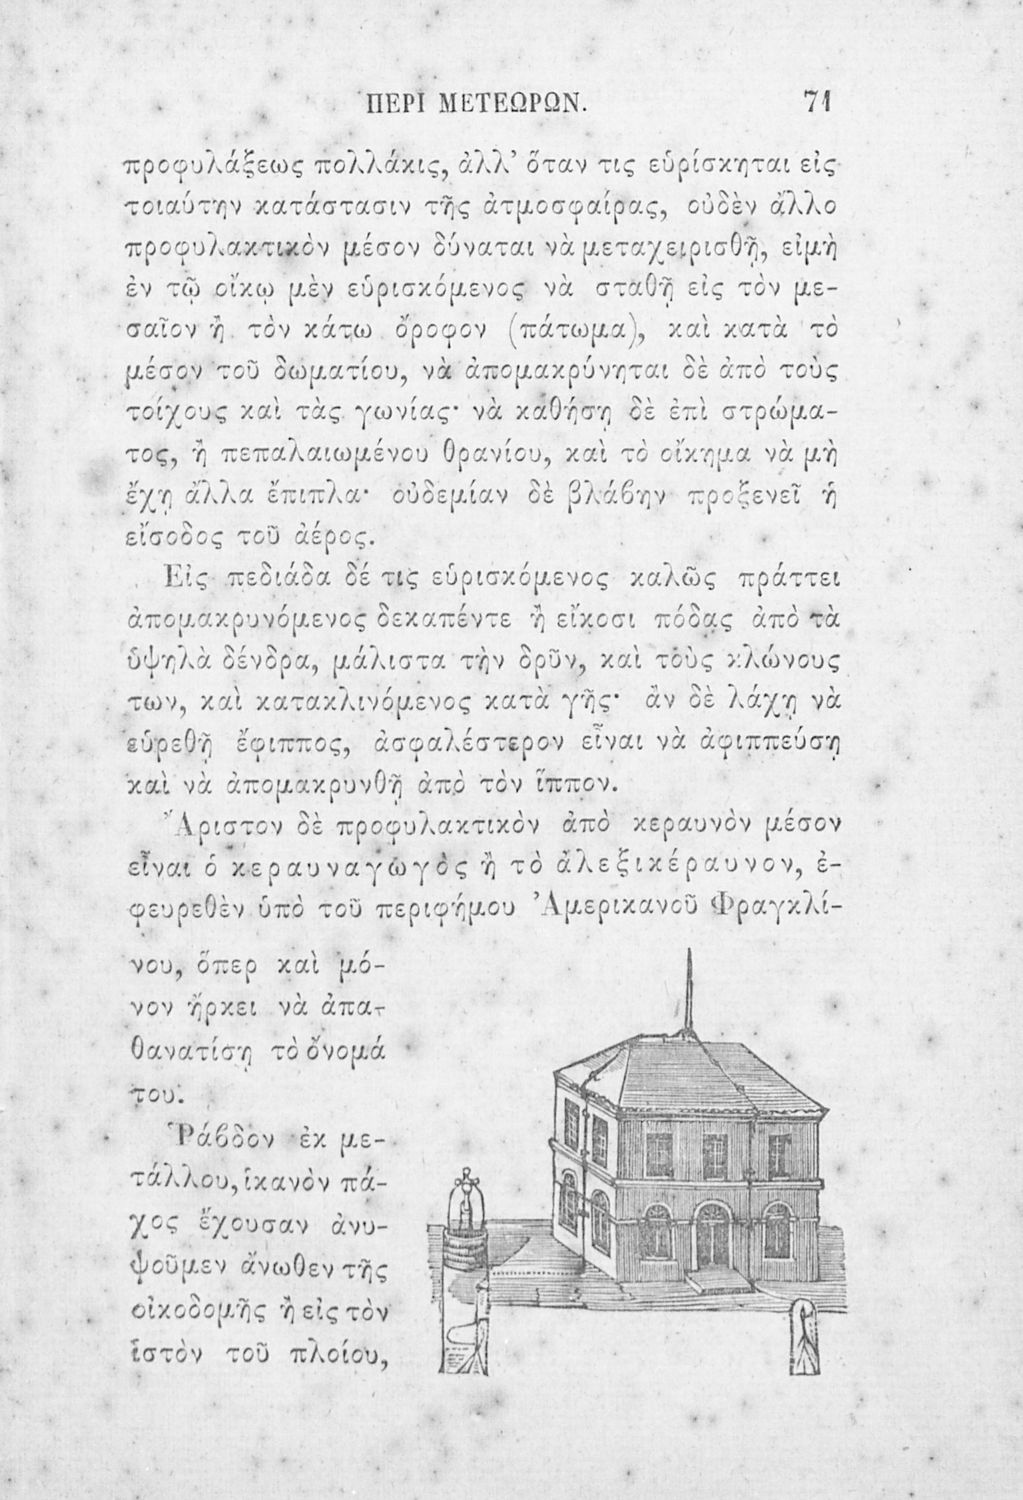 ΠΕΡΙ ΜΕΤΕΩΡΩΝ. 71
προφυλάξεως πολλάκις, ἀλλ’ ὅταν τις εὑρίσκηται εἰς
τοιαύτην κατάστασιν τῆς ἀτμοσφαίρας, οὐδὲν ἄλλο
προφυλακτικὸν μέσον δύναται νὰ μεταχειρισθῇ, εἰμὴ
ἐν τῷ οἴκῳ μὲν εὑρισκόμενος νὰ σταθῇ εἰς τὸν με-
σαῖον ἢ τὸν κάτω ὄροφον (πάτωμα), καὶ κατὰ τὸ
μέσον τοῦ δωματίου, νὰ ἀπομακρύνηται δὲ ἀπὸ τοὺς
τοίχους καὶ τὰς γωνίας· νὰ καθήσῃ δὲ ἐπὶ στρώμα-
τος, ἢ πεπαλαιωμένου θρανίου, καὶ τὸ οἴκημα νὰ μὴ
ἔχῃ ἄλλα ἔπιπλα· οὐδεμίαν δὲ βλάβην προξενεῖ ἡ
εἴσοδος τοῦ ἀέρος.
Εἰς πεδιάδα δέ τις εὑρισκόμενος καλῶς πράττει
ἀπομακρυνόμενος δεκαπέντε ἢ εἴκοσι πόδας ἀπὸ τὰ
ὑψηλὰ δένδρα, μάλιστα τὴν δρῦν, καὶ τοὺς κλώνους
των, καὶ κατακλινόμενος κατὰ γῆς· ἂν δὲ λάχῃ νὰ
εὑρεθῇ ἔφιππος, ἀσφαλέστερον εἶναι νὰ ἀφιππεύσῃ
καὶ νὰ ἀπομακρυνθῇ ἀπὸ τὸν ἵππον.
Ἄριστον δὲ προφυλακτικὸν ἀπὸ κεραυνὸν μέσον
εἶναι ὁ κεραυναγωγὸς ἢ τὸ ἀλεξικέραυνον, ἐ-
φευρεθὲν ὑπὸ τοῦ περιφήμου Ἀμερικανοῦ Φραγκλί-
νου, ὅπερ καὶ μό-
νον ἤρκει νὰ ἀπα-
θανατίσῃ τὸ ὄνομά
του.
Ῥάβδον ἐκ με-
τάλλου, ἱκανὸν πά-
χος ἔχουσαν ἀνυ-
ψοῦμεν ἄνωθεν τῆς
οἰκοδομῆς ἢ εἰς τὸν
ἱστὸν τοῦ πλοίου,